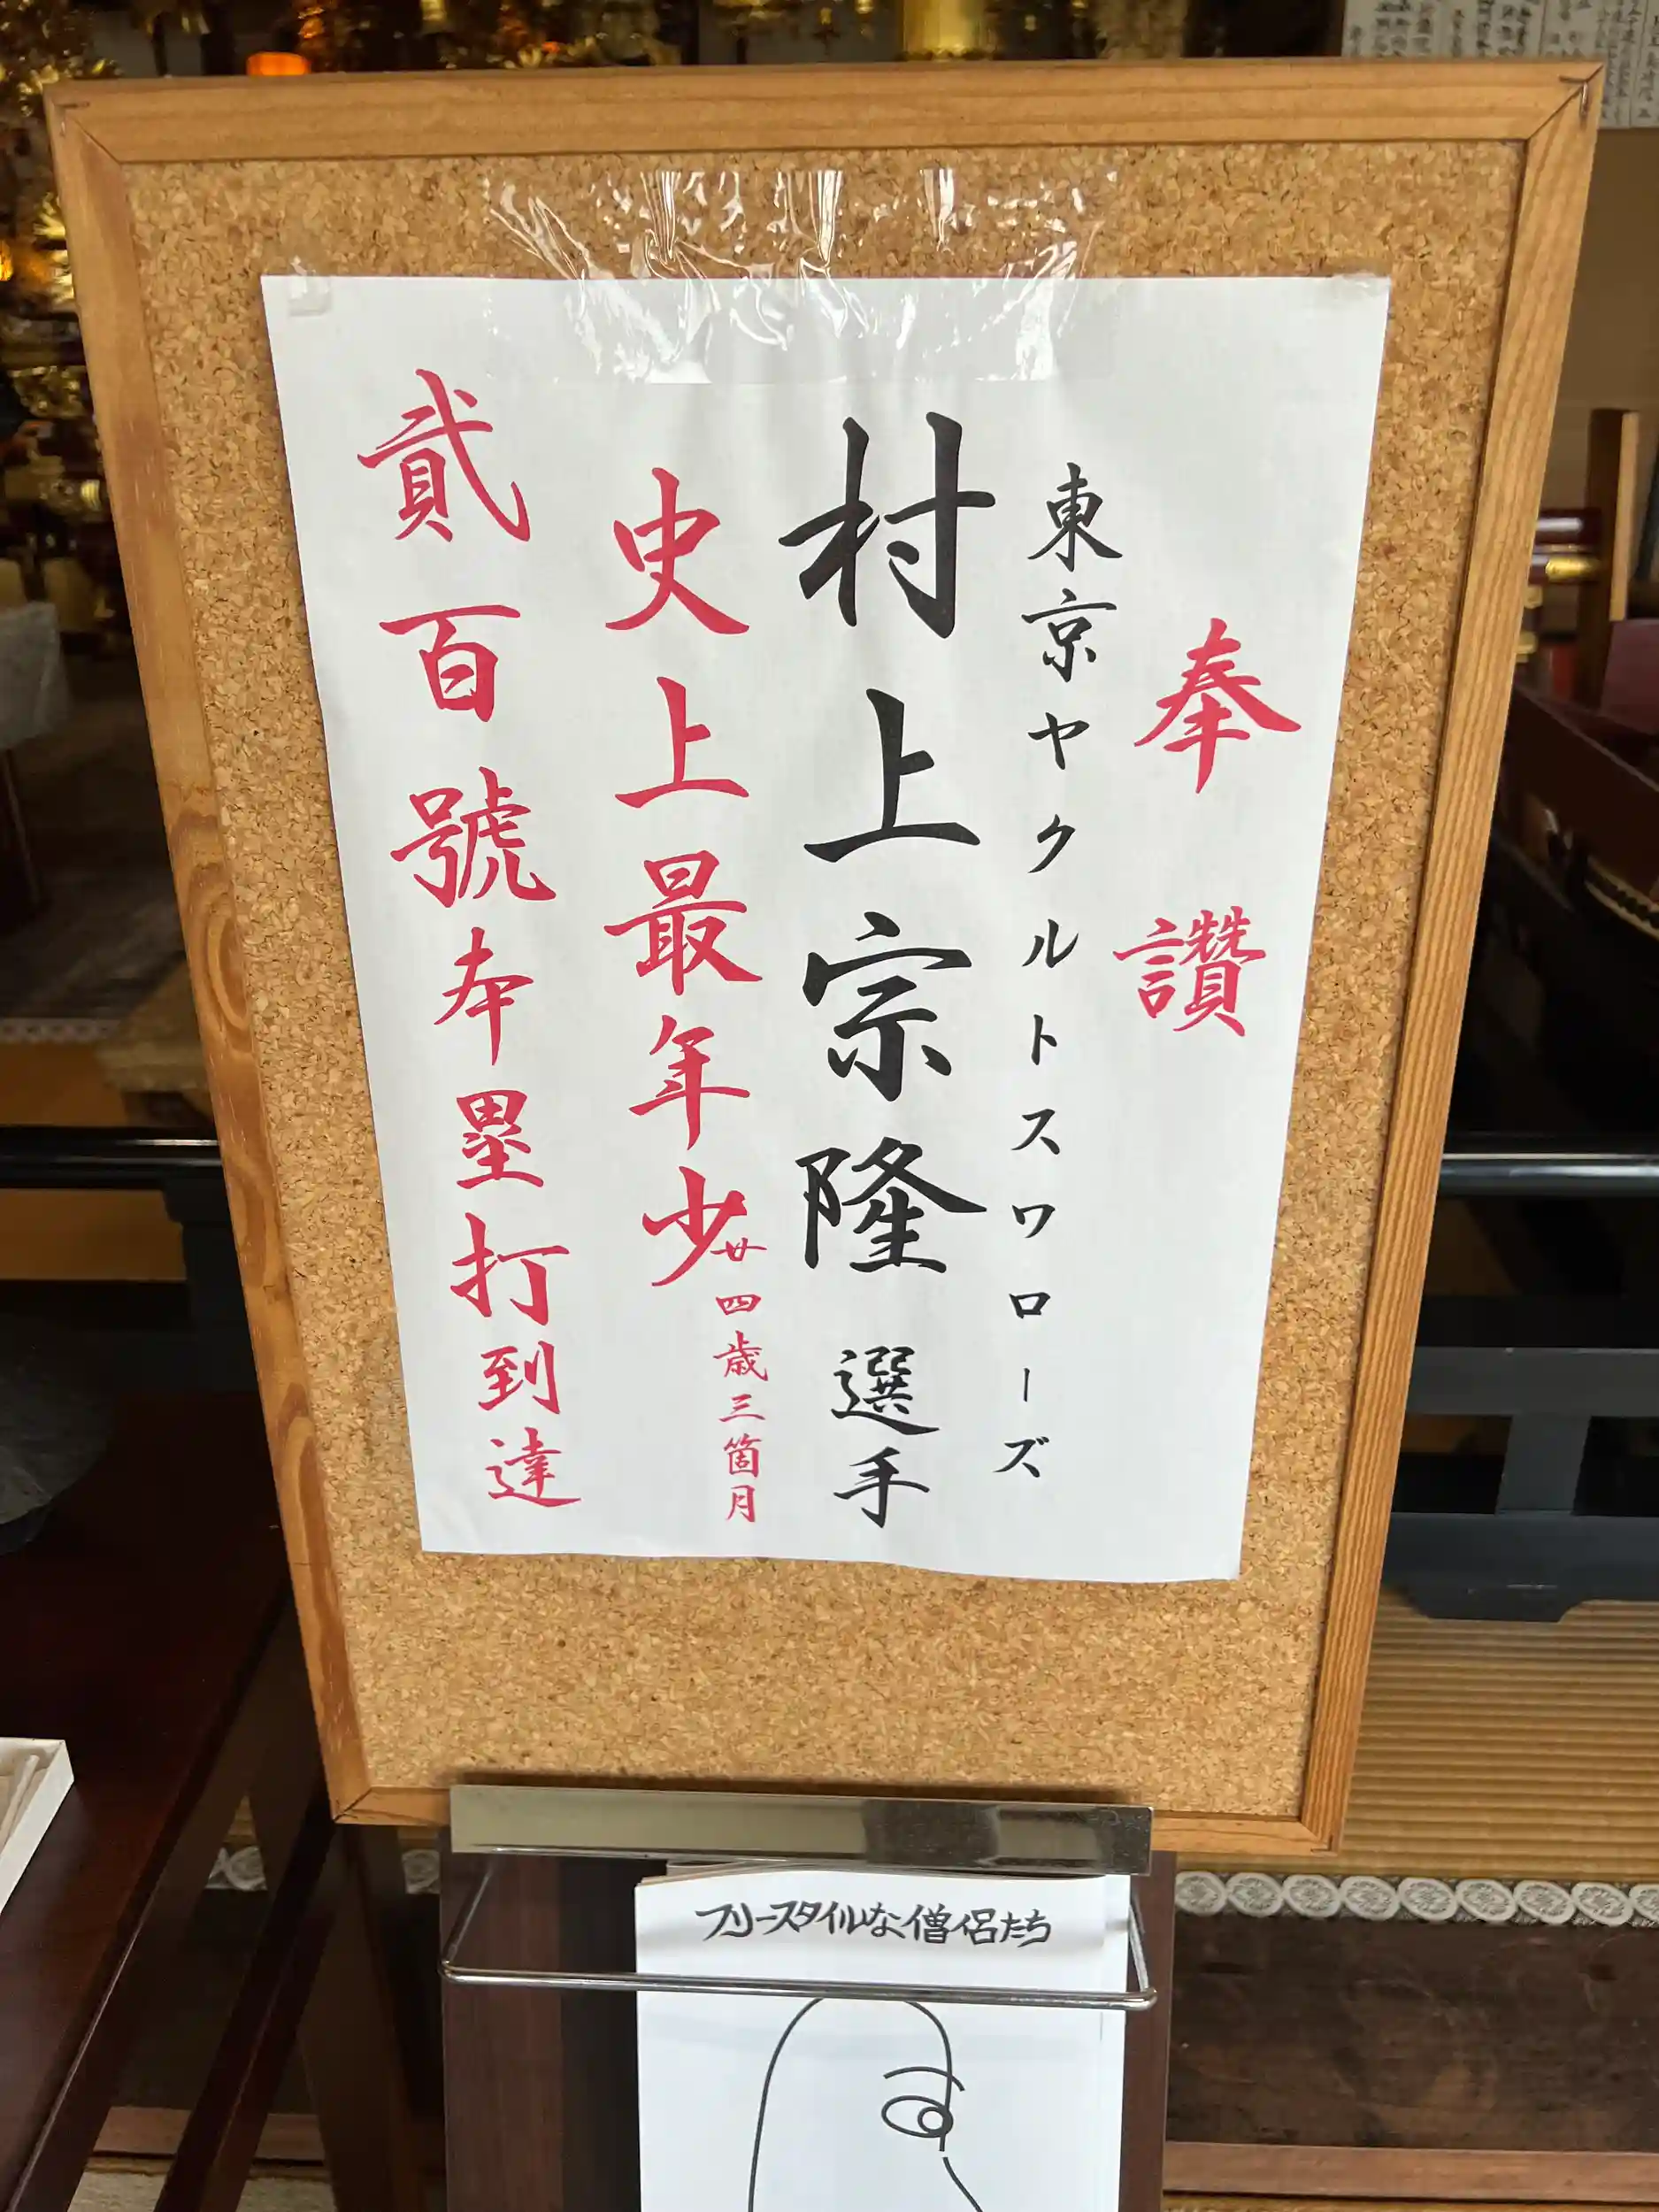 奉讃
東京ヤクルトスワローズ
村上宗隆選手
史上最年少
廿四歳三箇月
貳百號本塁打到達
フリースタイルな僧侶たち